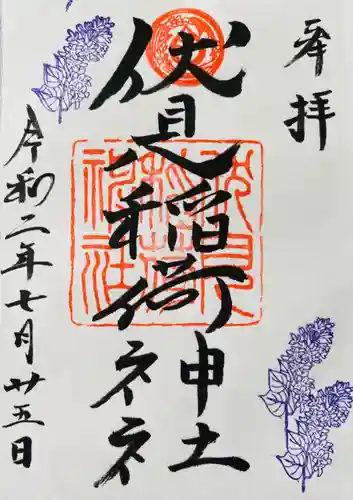 奉拝
伏見稲荷神社
伏見
稲荷
神社
令和二年七月廿五日